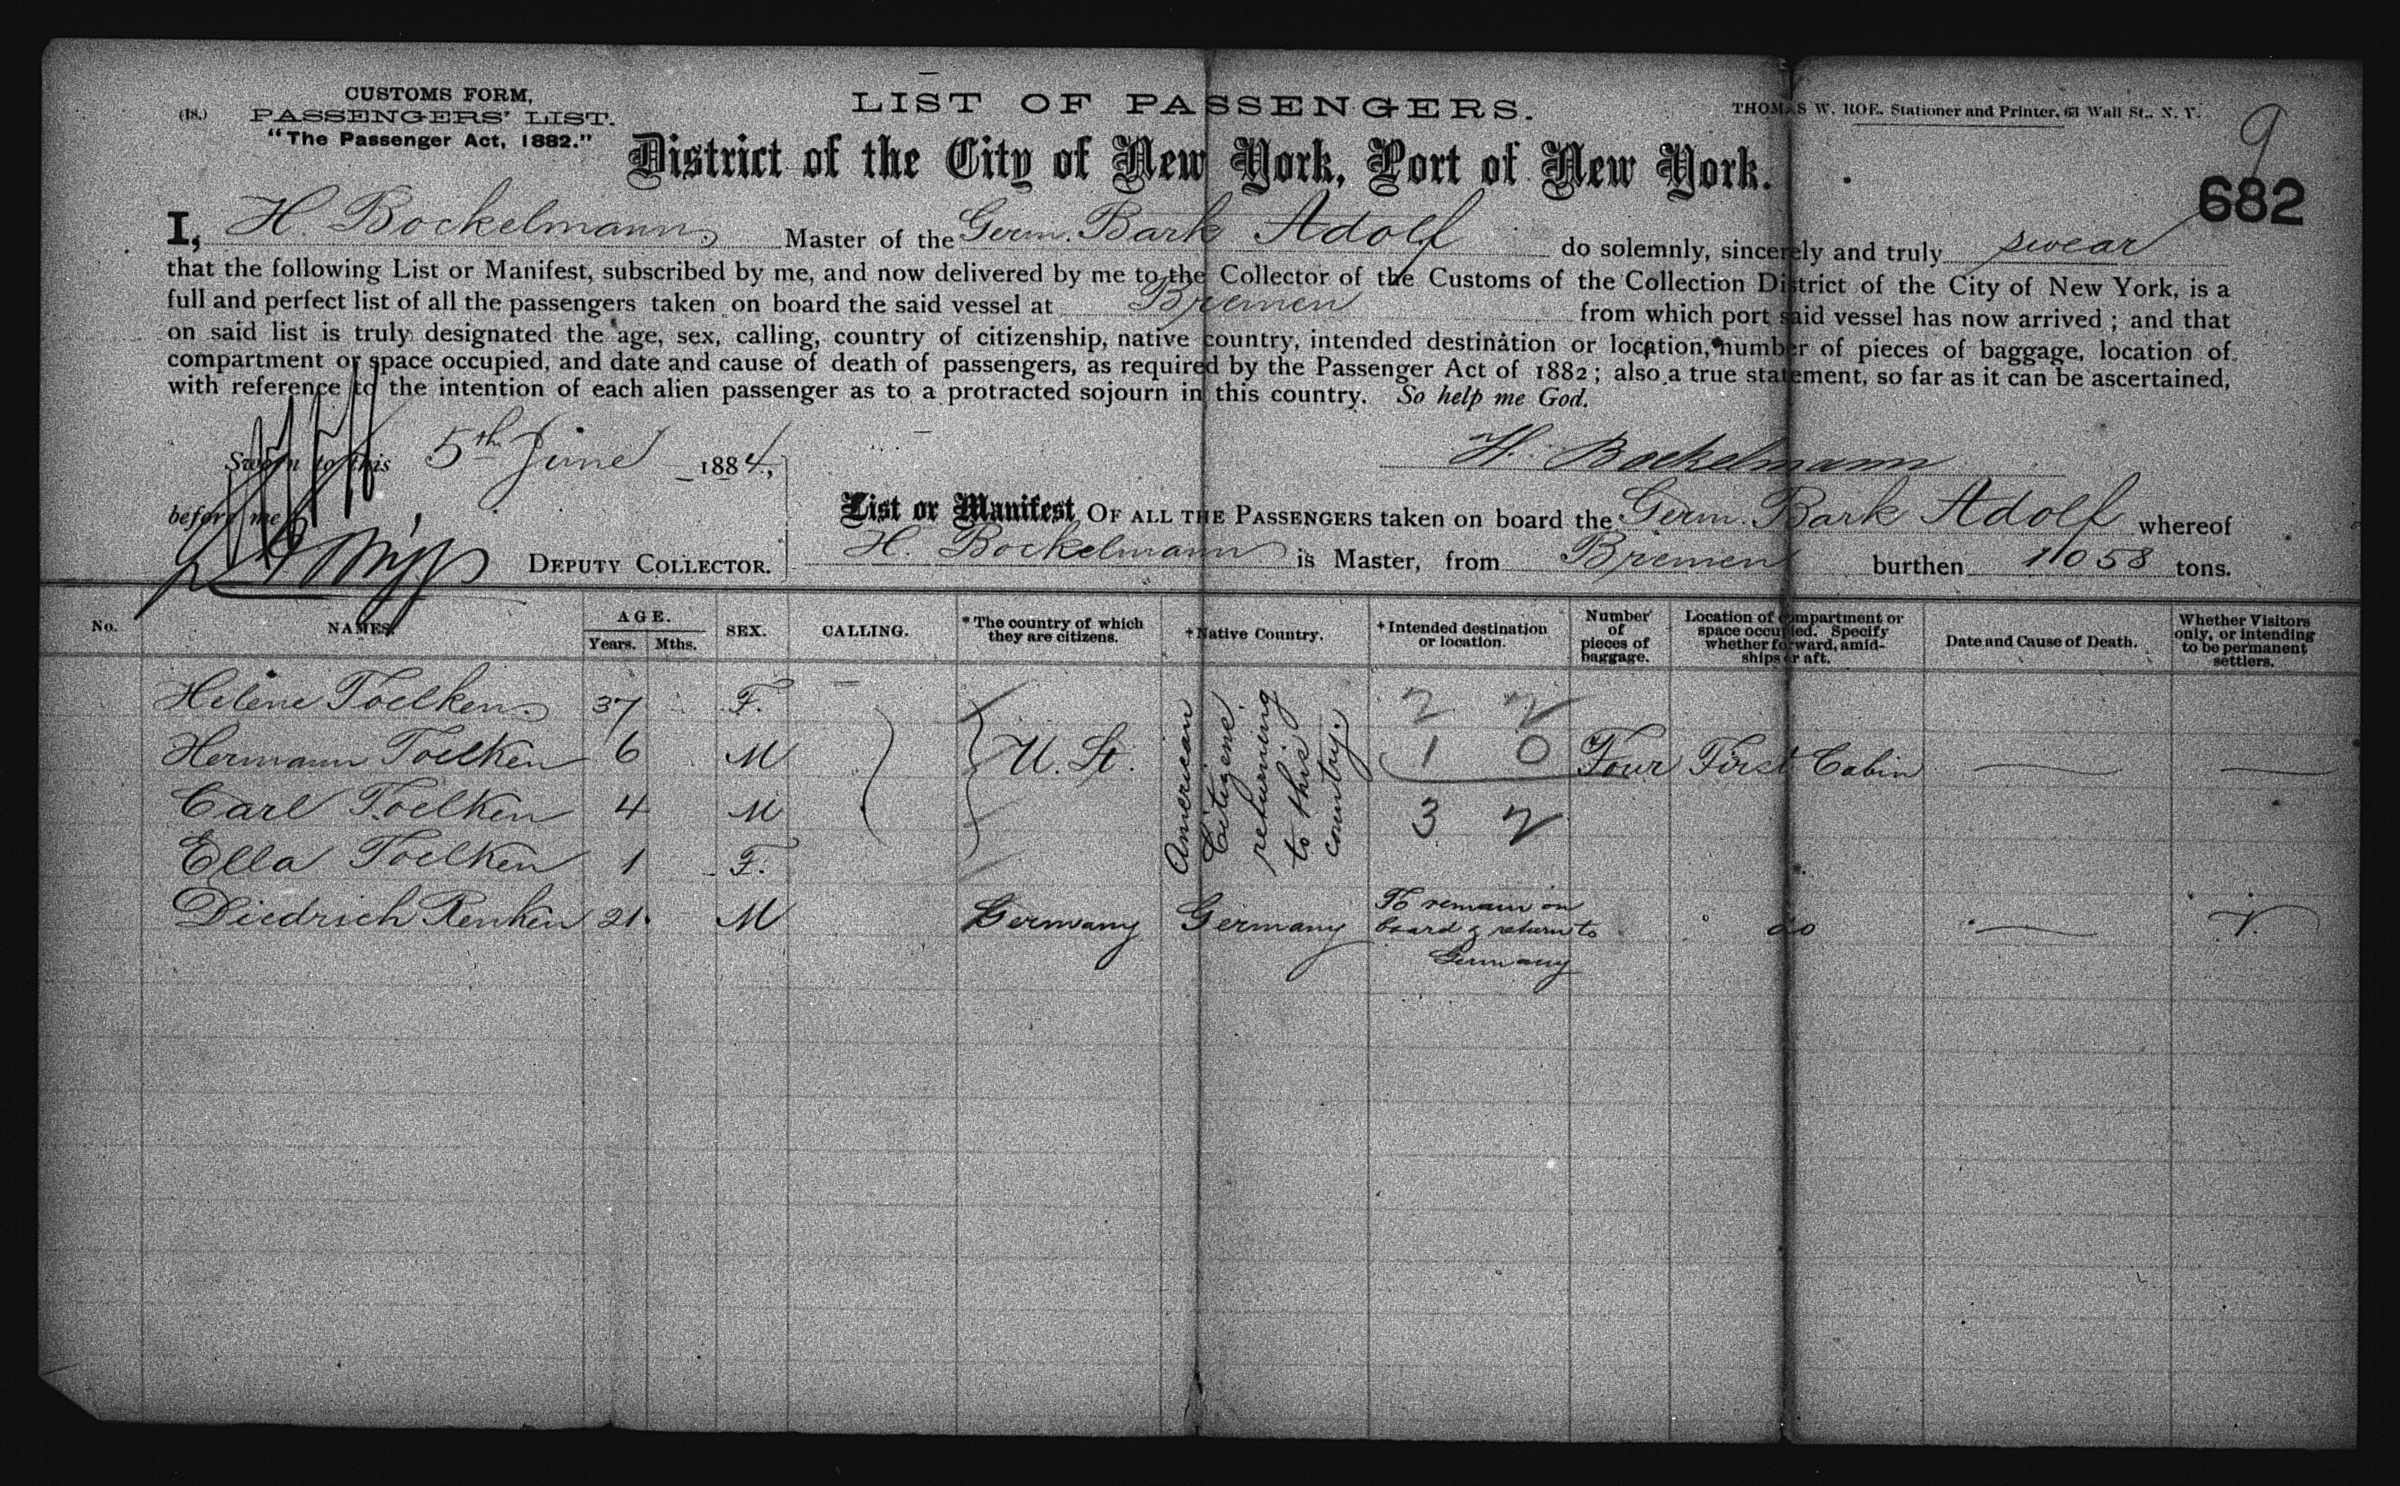 CUSTOMS FORM,
(18.) PASSENGERS' LIST.
"The Passenger Act, 1882."
LIST OF PASSENGERS.
THOMAS W. ROE, Stationer and Printer, 63 Wall St., N. Y.
9
District of the City of New York, Port of New York.
682
I, H. Bockelmann Master of the Germ. Bark Adolf do solemnly, sincerely and truly swear
that the following List or Manifest, subscribed by me, and now delivered by me to the Collector of the Customs of the Collection District of the City of New York, is a
full and perfect list of all the passengers taken on board the said vessel at Bremen from which port said vessel has now arrived; and that
on said list is truly designated the age, sex, calling, country of citizenship, native country, intended destination or location, number of pieces of baggage, location of
compartment or space occupied, and date and cause of death of passengers, as required by the Passenger Act of 1882; also a true statement, so far as it can be ascertained,
with reference to the intention of each alien passenger as to a protracted sojourn in this country. So help me God.
Sworn to this 5th June 1884,
H. Bockelmann
before me
DEPUTY COLLECTOR.
List or Manifest OF ALL THE PASSENGERS taken on board the Germ. Bark Adolf whereof
H. Bockelmann is Master, from Bremen burthen 1058 tons.
No. NAMES. AGE. Years. Mths. SEX. CALLING. *The country of which they are citizens. †Native Country. *Intended destination or location. Number of pieces of baggage. Location of compartment or space occupied. Specify whether forward, amidships or aft. Date and Cause of Death. Whether Visitors only, or intending to be permanent settlers.
Helene Toelken 37 F. 2 2
Hermann Toelken 6 M U. St. American Citizens returning to this country. 1 0 Four First Cabin
Carl Toelken 4 M 3 2
Ella Toelken 1 F.
Diedrich Renken 21 M Germany Germany To remain on board & return to Germany do V.